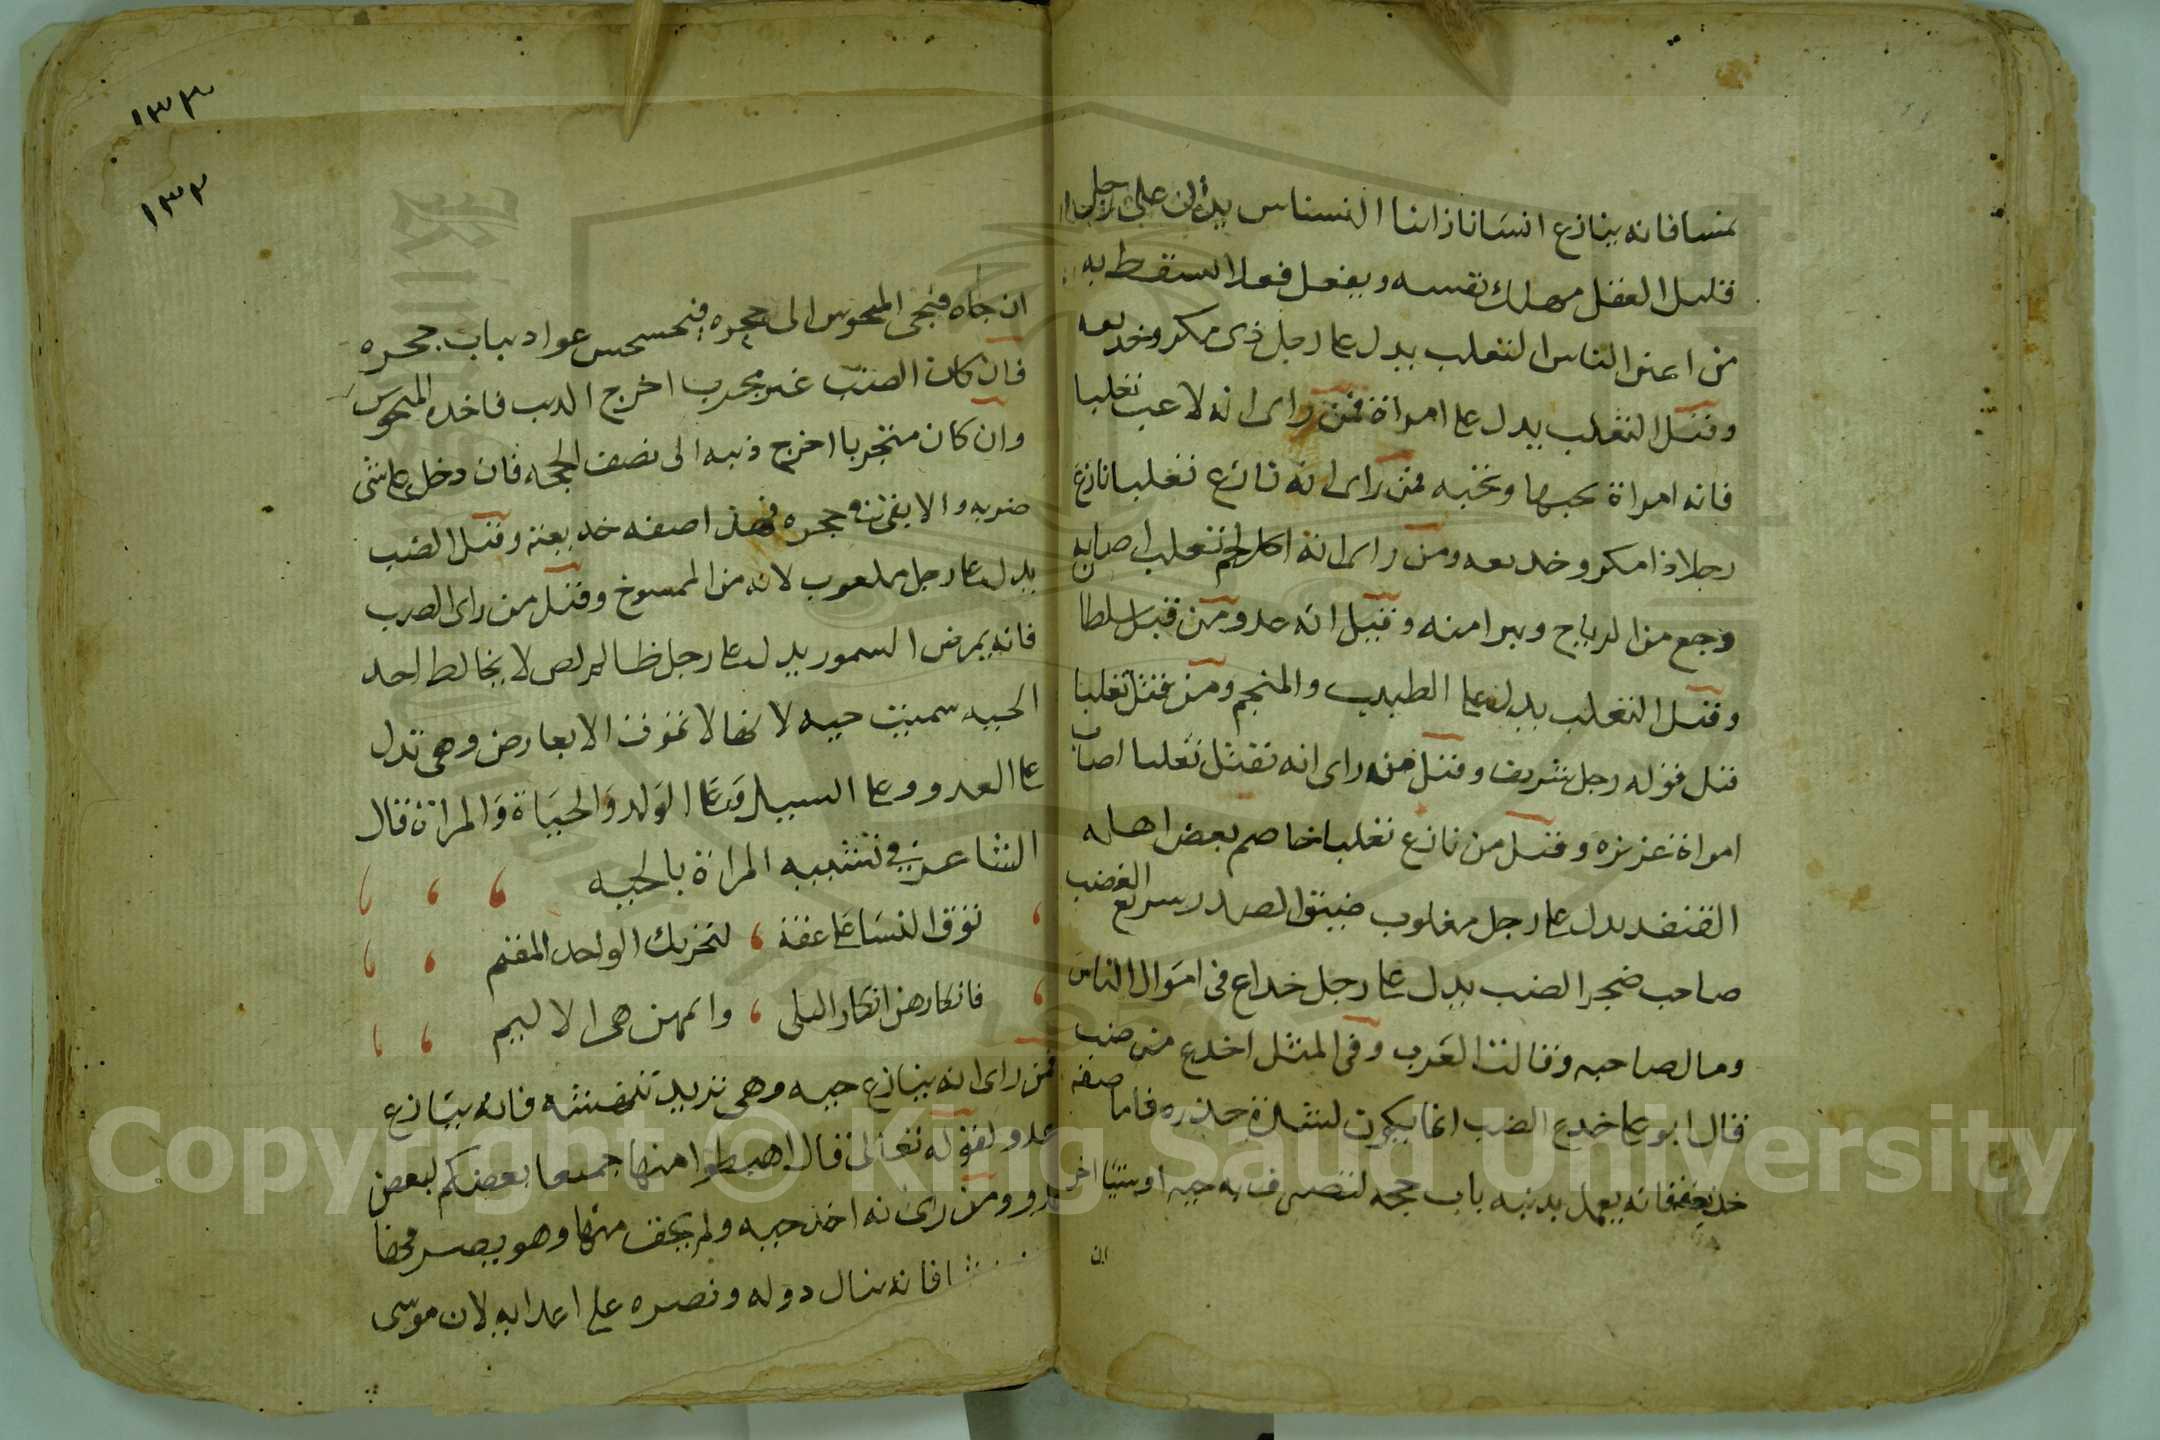 نمسا فانه ينازع انسانا ذا سا النسناس يدل على رجل
قليل العقل مهلك نفسه ويفعل فعلا السقط به
من اعين الناس الثعلب يدل على رجل ذى مكر وخديعه
وقيل الثعلب يدل على امراة فمن راى انه لاعب ثعلبا
فانه امراة يحبها وتحبه فمن راى انه نازع ثعلبا نازع
رجلا ذا مكر وخديعه ومن راى انه اكل لحم ثعلب اصابه
وجع من الرياح ويبرا منه وقيل انه عدو من قبل سلطا
وقيل الثعلب يدل على الطبيب والمنجم ومن قتل ثعلبا
قتل قوله رجل شريف وقيل من راى انه تقتل ثعلبا اصاب
امراة عزيزه وقيل من نازع ثعلبا خاصم بعض اهله
القنفد يدل على رجل مغلوب ضيق الصدر سريع الغضب
صاحب ضجر الضب يدل على رجل خداع فى اموال الناس
ومال صاحبه وقالت العرب وفى المثل اخدع من ضب
فقال ابو على خدع الضب انما يكون لشدة حذره فاما صفه
خديعته فانه يعمل بدنبه باب جحره لتضرب به حيه او شيا اخر
ان
١٣٣
١٣٢
ان جاه فيجى المحوس الى جحره فيحسحس عواد بباب جحره
فان كان الضب غير مجرب اخرج الدب فاخده المحوس
وان كان متجربا اخرج ذنبه الى نصف الجحره فان دخل على شى
ضربه والا بقى فى جحره فهذا صفه خديعته وقيل الضب
يدل على رجل ملعوب لانه من الممسوخ وقيل من راى الضب
فانه يمرض السمور يدل على رجل ظالم لص لا يخالط احد
الحيه سميت حيه لانها لا تموت الا بعارض وهى تدل
على العدو وعلى السبيل وعلى الولد والحياة والمراة قال
الشاعر فى تشبيه المراة بالحيه
توق النسا على عفة ، لتحريك الواحد المفنم
فانكارهن انكار البلى ، وايمهن هى الاليم
فمن راى انه ينازع حيه وهى تريد تنهشه فانه ينازع
عدو لقوله تعالى قال اهبطوا منها جميعا بعضكم لبعض
عدو ومن راى انه اخد حيه ولم يخف منها وهو يصرفها
فانه ينال دوله ونصره على اعدايه لان موسى
Copyright © King Saud University